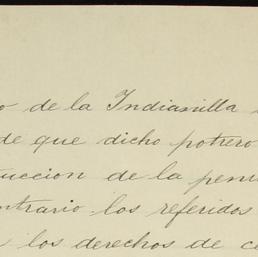 o de la Indianilla
de que dicho potrero
tuccion de la peni
ntrario los referidos
i los derechos de co